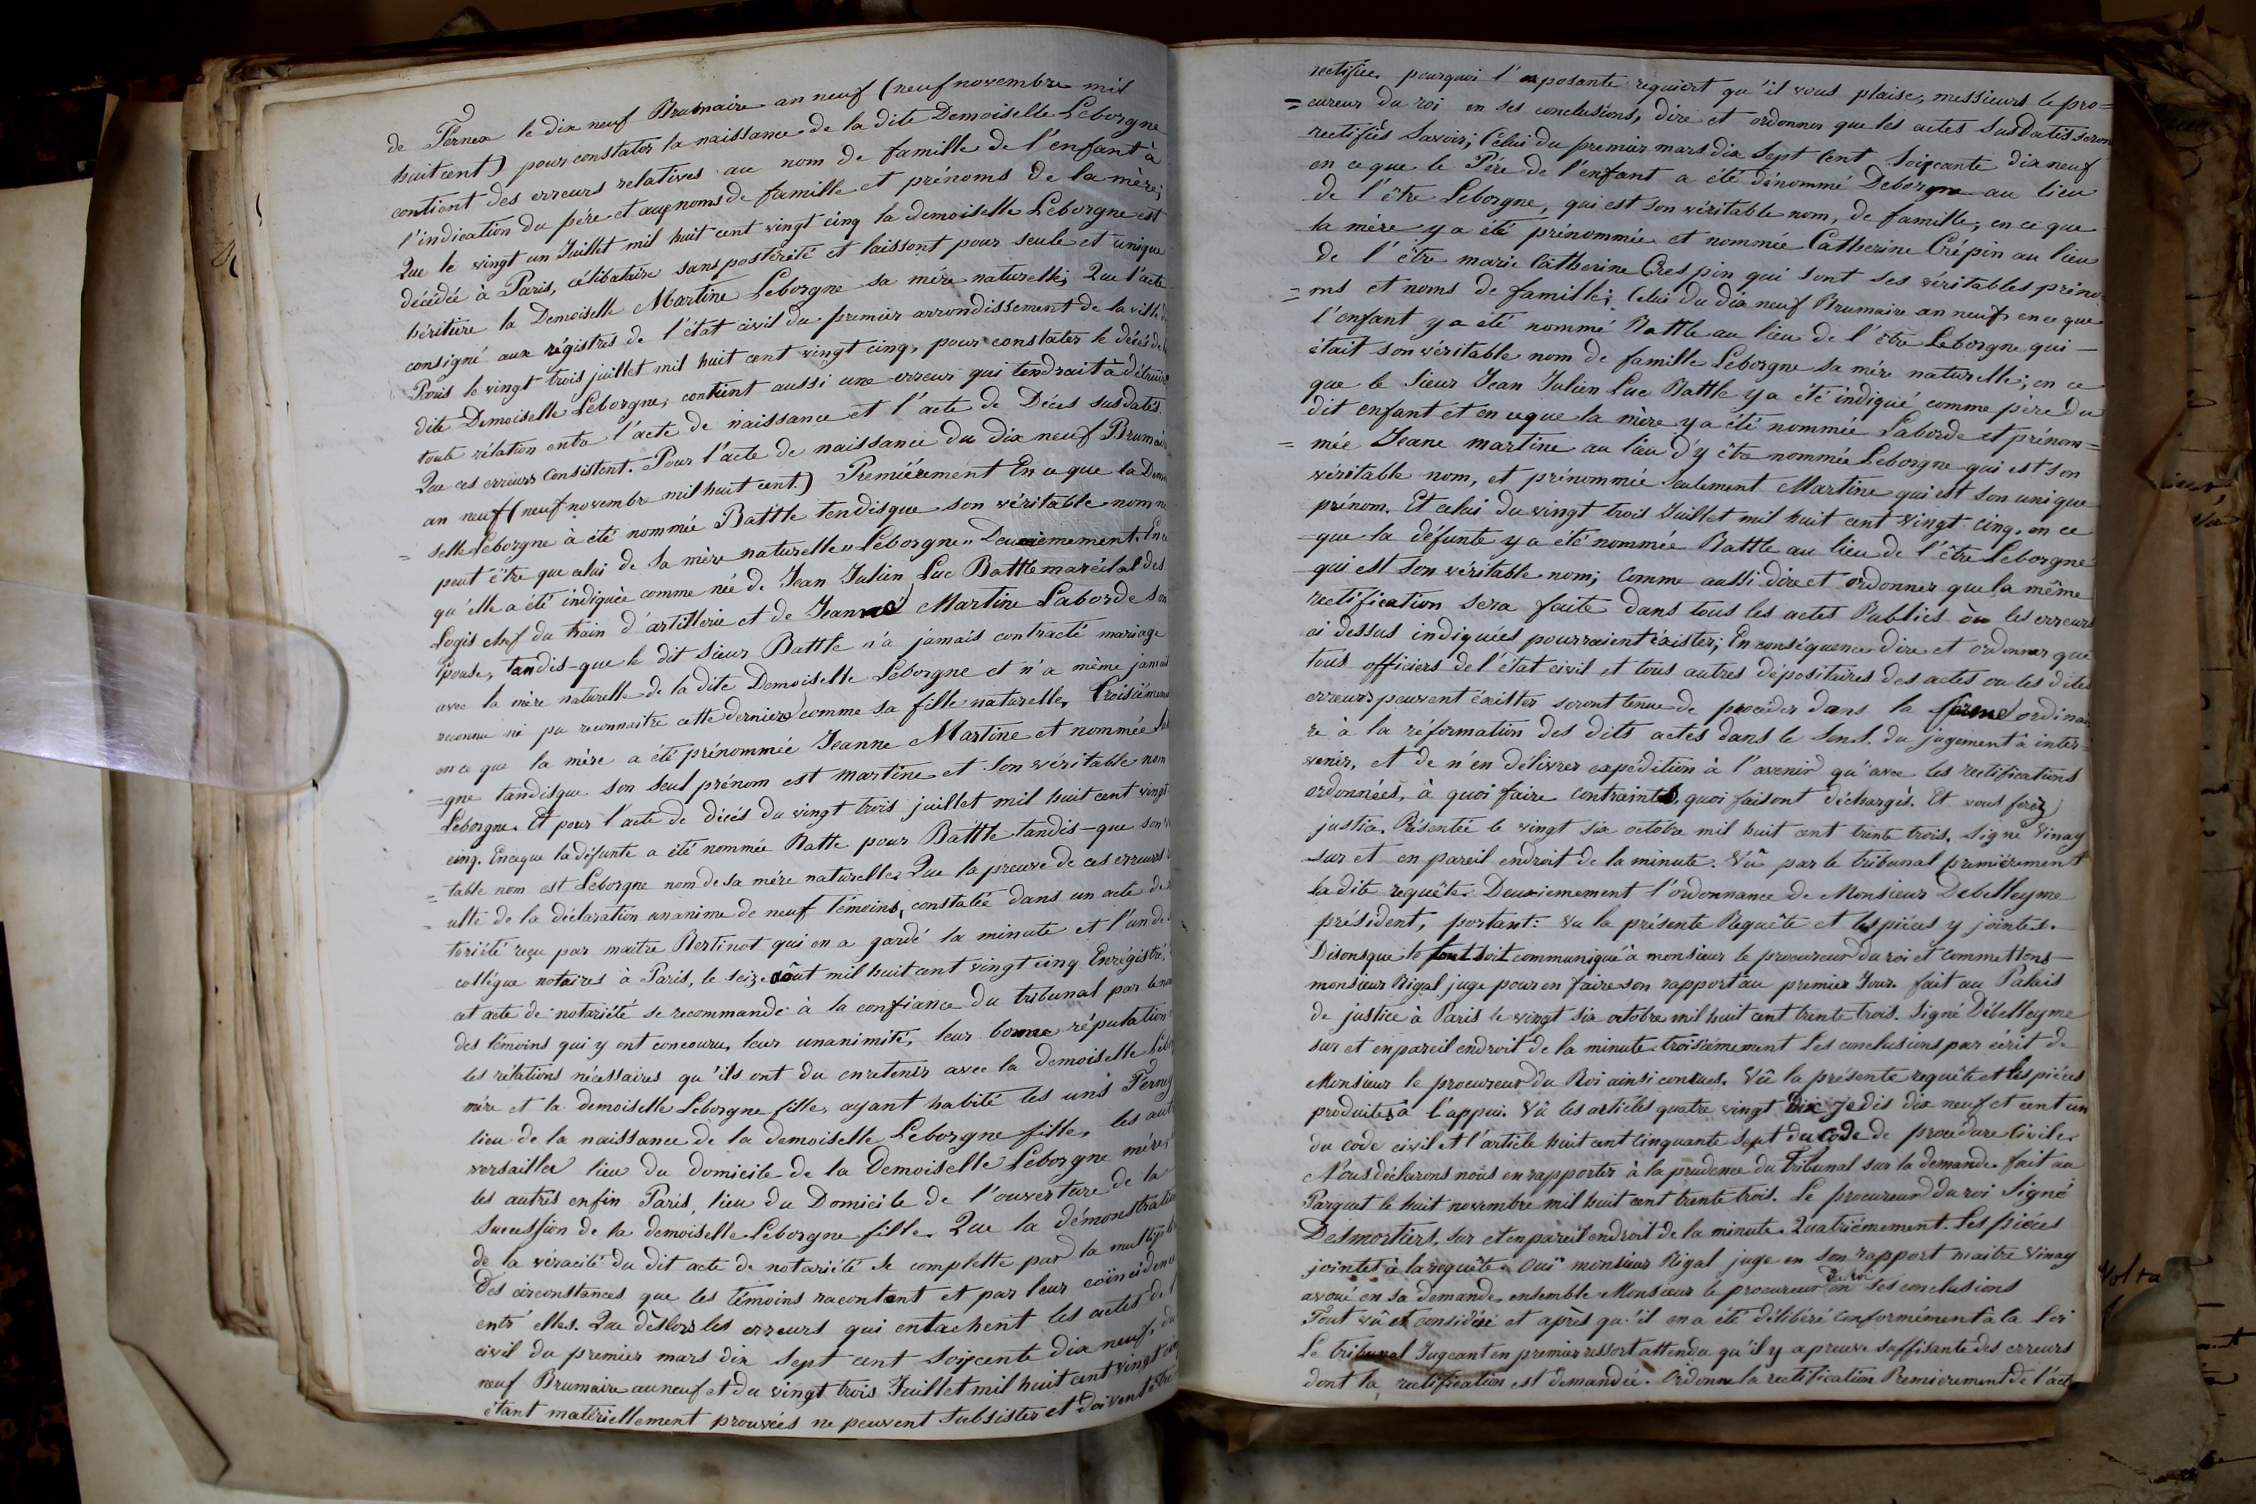 de Fernex le dix neuf Brumaire an neuf (neuf novembre mil
huit cent) pour constater la naissance de la dite Demoiselle Leborgne
contient des erreurs relatives au nom de famille de l'enfant à
l'indication du père et aux noms de famille et prénoms de la mère;
Que le vingt un Juillet mil huit cent vingt cinq la demoiselle Leborgne est
décédée à Paris, célibataire sans postérité et laissont pour seule et unique
héritière la Demoiselle Martine Leborgne sa mère naturelle; Que l'acte
consigné aux régistres de l'état civil du premier arrondissement de la ville
Paris le vingt trois juillet mil huit cent vingt cinq, pour constater le décès de
dite Demoiselle Leborgne, contient aussi une erreur qui tendrait à détruire
toute rélation entre l'acte de naissance et l'acte de Décès susdatés.
Que ces erreurs consistent. Pour l'acte de naissance du dix neuf Brumaire
an neuf (neuf novembre mil huit cent.) Premièrement En ce que la Demoi
= selle Leborgne à été nommée Battle tandisque son véritable nom ne
peut être que celui de sa mère naturelle " Leborgne " Deuxiemement. En ce
qu'elle a été indiquée comme née de Jean Julien Luc Battle maréchal des
Logis chef du train d'artillerie et de Jeanne Martine Laborde son
Epouse, tandis-que le dit sieur Battle n'a jamais contracté mariage
avec la mère naturelle de la dite Demoiselle Leborgne et n'a même jamais
reconnu ni pu reconnaitre cette derniere comme sa fille naturelle, Troisièmement
en ce que la mère a été prénommée Jeanne Martine et nommée Lebor
= gne tandisque son seul prénom est martine et son véritable nom
Leborgne. Et pour l'acte de décès du vingt trois juillet mil huit cent vingt
cinq. Enceque la défunte a été nommée Batte pour Battle tandis-que son véri
= table nom est Leborgne nom de sa mère naturelle. Que la preuve de ces erreurs
ulte de la déclaration unanime de neuf témoins, constatée dans un acte de
toriété reçu par maitre Bertinot qui en a gardé la minute et l'un de
collégue notaires à Paris, le seize août mil huit cent vingt cinq Enrégistré,
cet acte de notariété se recommande à la confiance du tribunal par le
des témoins qui y ont concouru, leur unanimité, leur bonne réputation
les rélations nécessaires qu'ils ont du enretenir avec la demoiselle Lebor
mère et la demoiselle Leborgne fille, ayant habité les uns Ferney
lieu de la naissance de la demoiselle Leborgne fille, les aut
versailles lieu du domicile de la Demoiselle Leborgne mère,
les autres enfin Paris, lieu du Domicile de l'ouverture de la
Succession de la demoiselle Leborgne fille. Que la démonstration
de la véracité du dit acte de notariété se complette par la multiplicité
des circonstances que les témoins racontent et par leur coïncidence
entr' elles. Que dèslors les erreurs qui entachent les actes de l'
civil du premier mars dix sept cent soixcente dix neuf, du
neuf Brumaire an neuf et du vingt trois Juillet mil huit cent vingt cinq
étant matériellement prouvées ne peuvent subsister et doivent être
rectifiées. pourquoi l'exposante requiert qu'il vous plaise, messieurs le pro=
= cureur du roi en ses conclusions, dire et ordonner que les actes susdatés seron
rectifiés Savoir; Celui du premier mars dix sept cent soixcante dix neuf
en ce que le Père de l'enfant a été dénommé Deborgne au lieu
de l'être Leborgne, qui est son véritable nom, de famille; en ce que
la mère y a été prénommée et nommée Catherine Crépin au lieu
de l'être marie Catherine Crespin qui sont ses véritables préno=
= ms et noms de famille; Celui du dix neuf Brumaire an neuf en ce que
l'enfant y a été nommé Battle au lieu de l'être Leborgne qui —
était son véritable nom de famille Leborgne sa mère naturelle; en ce
que le Sieur Jean Julien Luc Battle y a été indiqué comme père du
dit enfant et en ce que la mère y a été nommée Laborde et prénom=
= mée Jeane martine au lieu d'y être nommée Leborgne qui est son
véritable nom, et prénommée seulement Martine qui est son unique
prénom. Et celui du vingt trois Juillet mil huit cent vingt cinq. en ce
que la défunte y a été nommée Battle au lieu de l'être Leborgne
qui est son véritable nom; Comme aussi dire et ordonner que la même
rectification sera faite dans tous les actes Publics où les erreurs
ci dessus indiquées pourraient éxister; En conséquence dire et ordonner que
tous officiers de l'état civil et tous autres dépositaires des actes ou les dites
erreurs peuvent éxister seront tenue de proceder dans la forme ordinai
re à la réformation des dits actes dans le sens du jugement à inter=
venir, et de n'en délivrer expédition à l'avenir qu'avec les rectifications
ordonnées, à quoi faire contraints, quoi faisont déchargés. Et vous ferez
justice. Présentée le vingt six octobre mil huit cent trente trois. signé Vinay
sur et en pareil endroit de la minute. Vû par le tribunal premièrement
la dite requête. Deuxiemement l'ordonnance de Monsieur Debelleyme
président, portant: vu la présente Requête et les piéces y jointes.
Disons que le tout soit communiqué à monsieur le procureur du roi et commettons —
monsieur Rigal juge pour en faire son rapport au premier Jour. fait au Palais
de justice à Paris le vingt six octobre mil huit cent trente trois. Signé Débelleyme
sur et en pareil endroit de la minute. troisièmement les conclusions par écrit de
Monsieur le procureur du Roi ainsi conçues. Vû la présente requête et les piéces
produites à l'appui. Vû les articles quatre vingt dix neuf et cent un
du code civil et l'article huit cent cinquante sept du code de procédure Civile.
Nous déclarons nous en rapporter à la prudence du Tribunal sur la demande. fait au
Parquet le huit novembre mil huit cent trente trois. Le procureur du roi Signé
Desmortiers, sur et en pareil endroit de la minute. Quatrièmement. Les piéces
jointes à la requête. Ouï monsieur Rigal juge en son rapport maitre Vinay
avoué en sa demande, ensemble Monsieur le procureur du roi en ses conclusions
Tout vû et considéré et après qu'il en a été délibéré conformément à la loi
Le Tribunal Jugeant en premier ressort attendu qu'il y a preuve suffisante des erreurs
dont la rectification est demandée. Ordonne la rectification Premierement de l'act